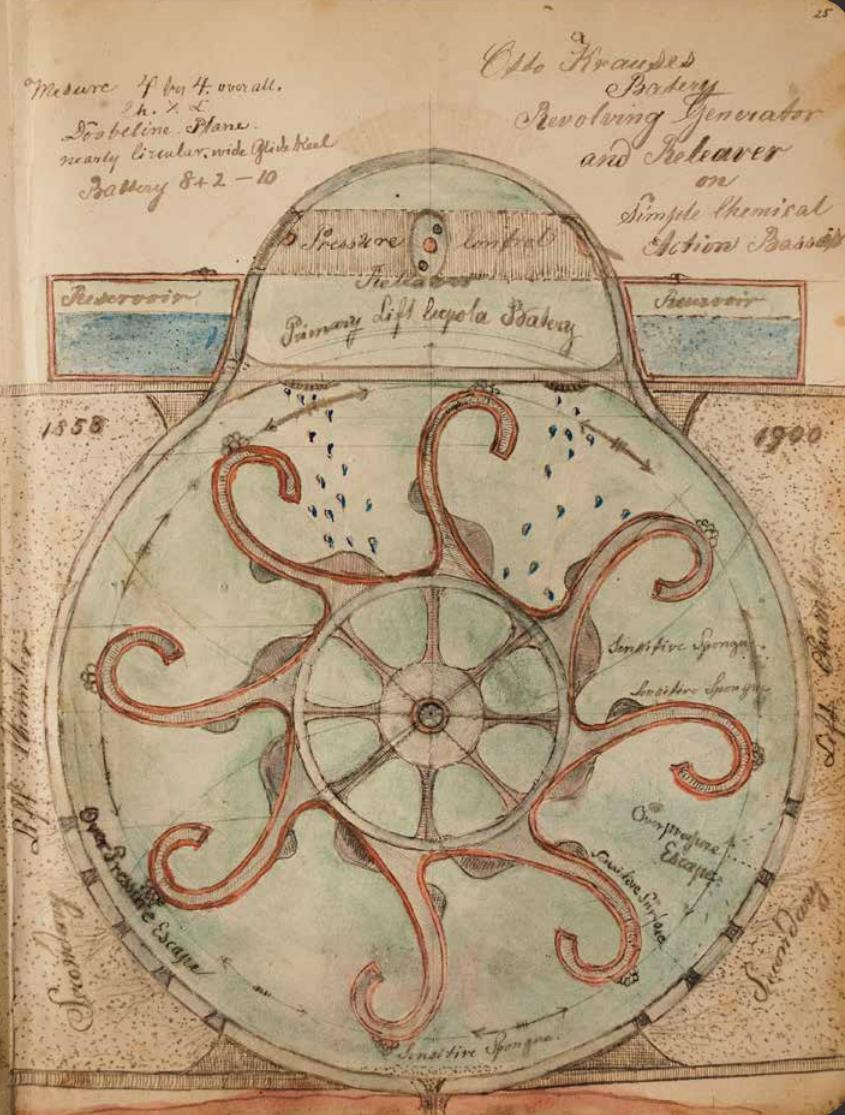 25
Mesure 4 by 4. over all.
Plane.
nearly Circular. wide Glide Keel
Battery 8+2 — 10
Otto Krauses
Batery
Revolving Generator
and Releaver
on
Simple Chemical
Action
Pressure Control
Releaver
Primary Lift Cupola Batery
Reservoir
Reservoir
1858
1900
Sensitive Sponge
Sensitive Sponge
Lift Chamber
Lift Chamber
Over Pressure
Escape
Sensitive Surface
Over Pressure Escape
Secondary
Secondary
Sensitive Sponge